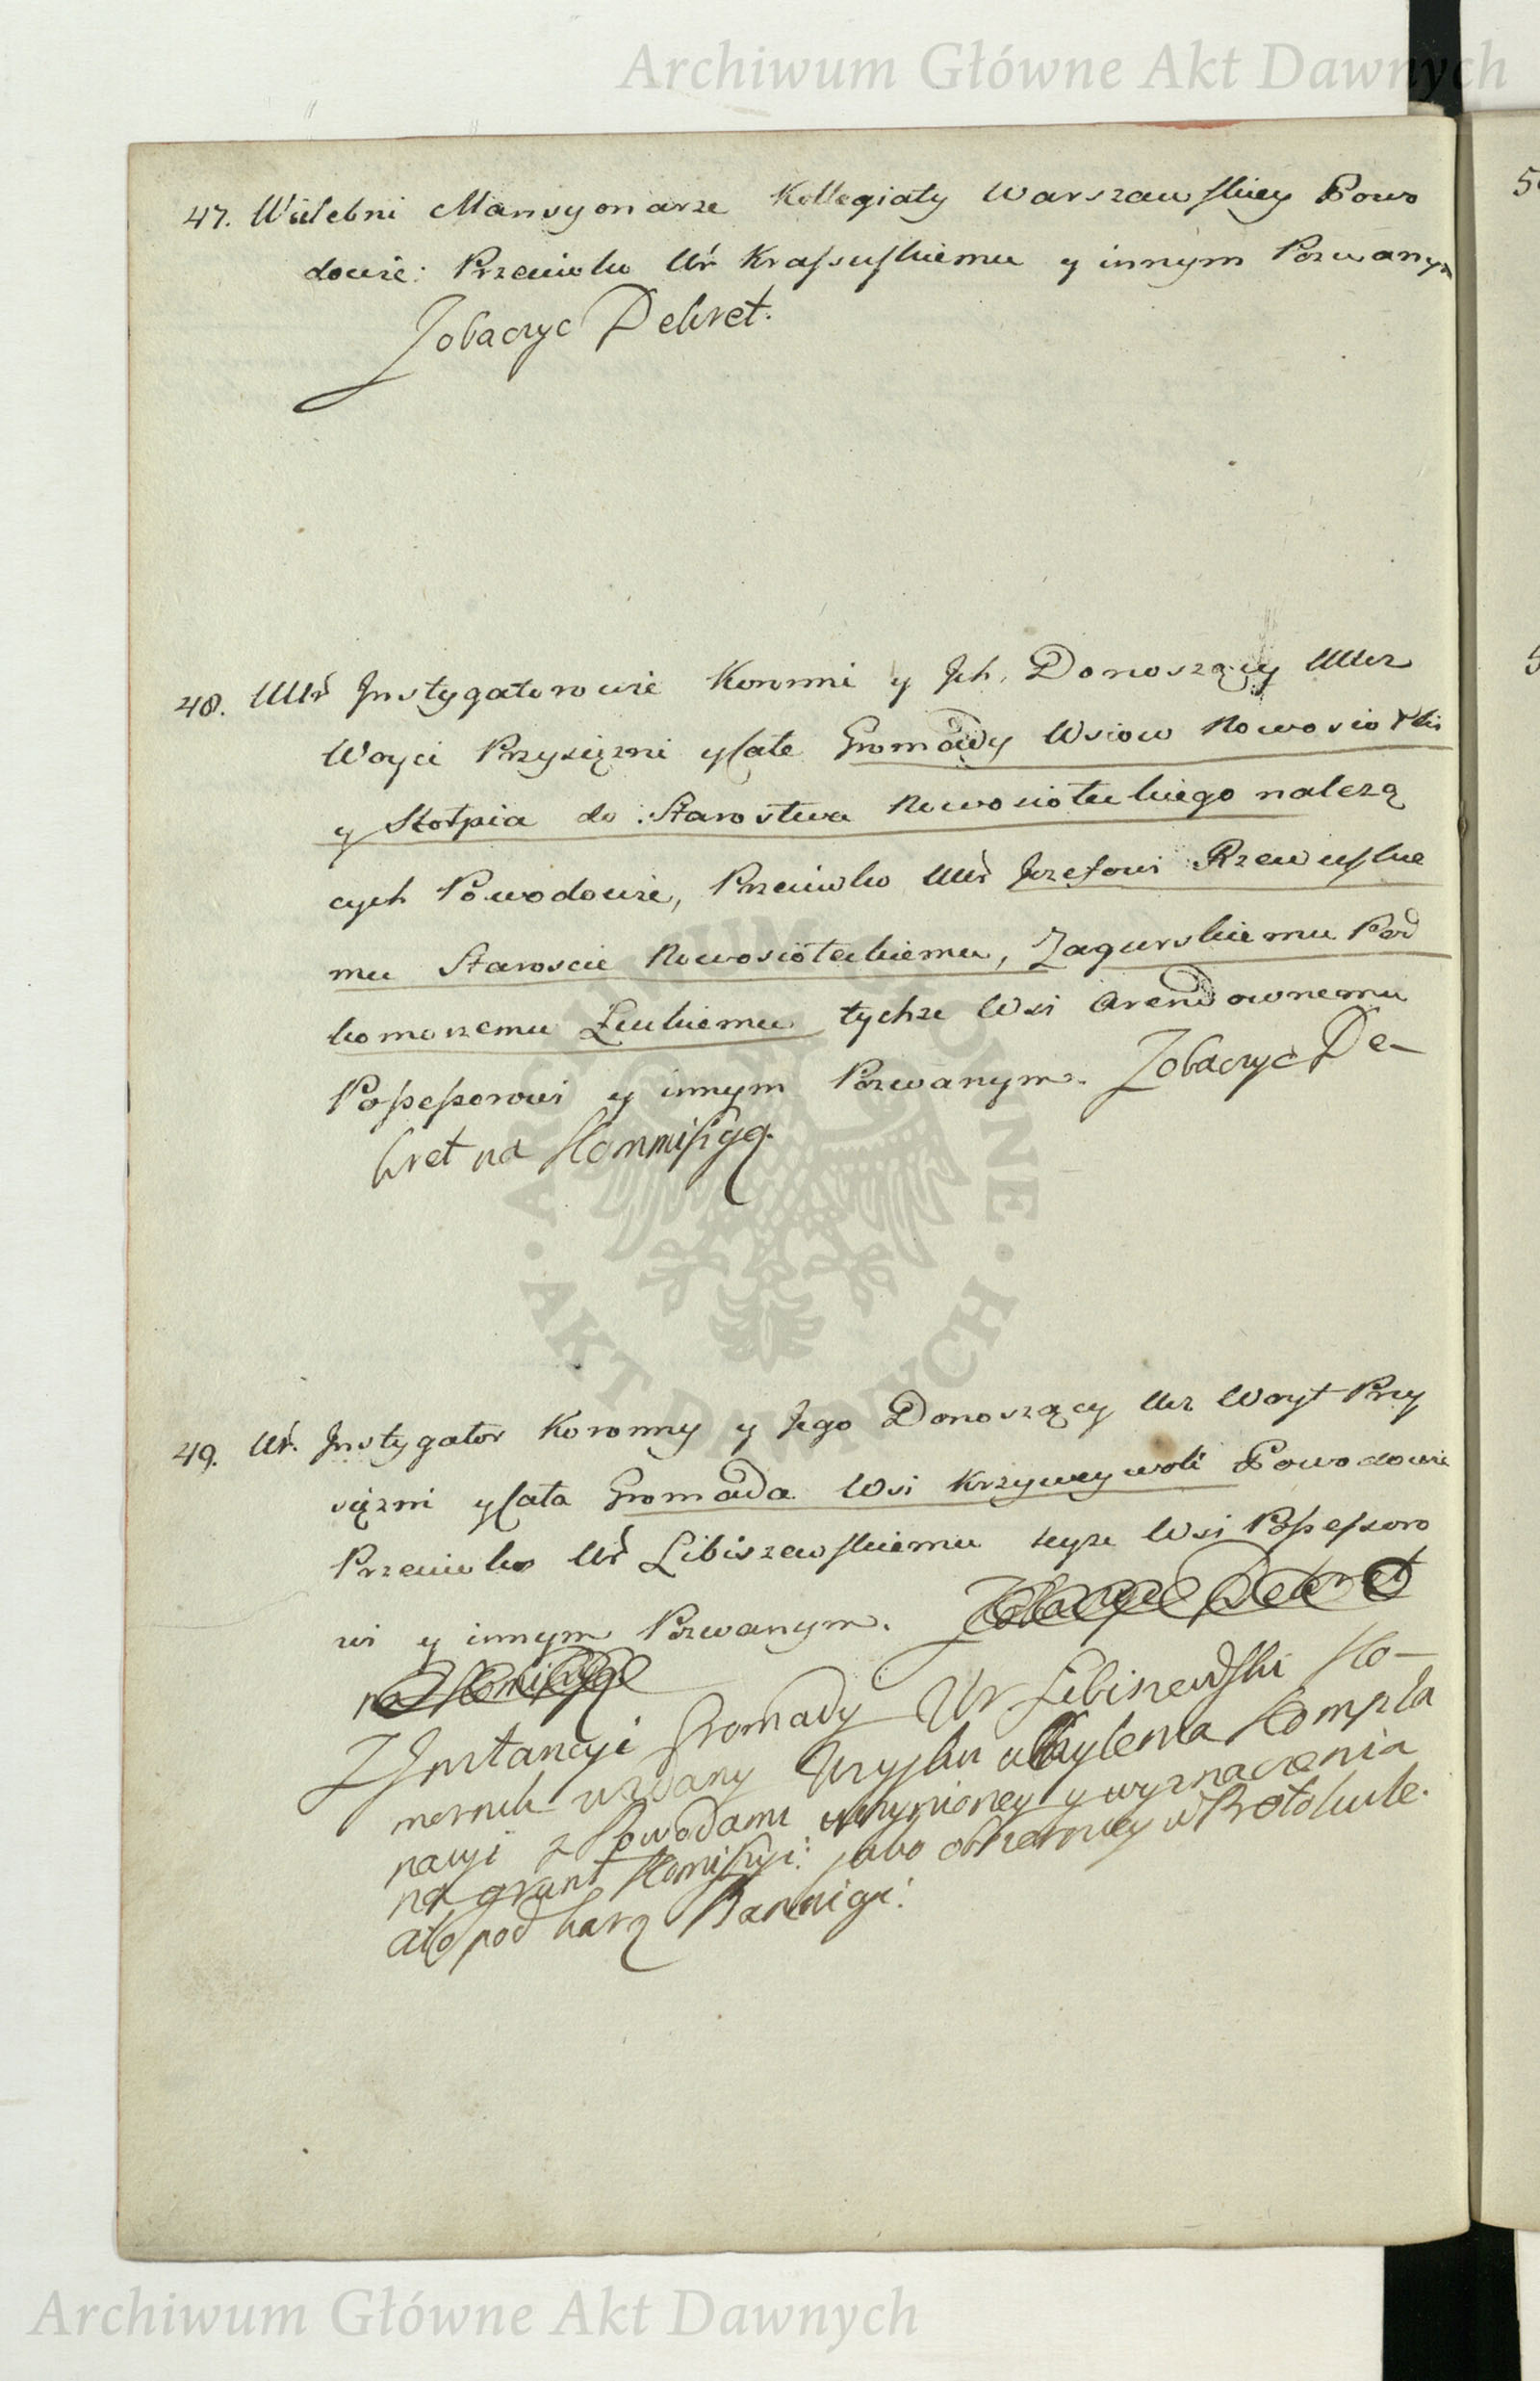 Archiwum Główne Akt Dawnych
47. Wielebni Mansyonarze Kollegiaty Warszawskiey Powo
dowie: Przeciwko Ur Krassuskiemu y innym Pozwanym
Zobaczyc Dekret.
48. UUr Jnstygatorowie Koronni y Jch. Donoszący UUcz
Woyci Przysięzni y cate Gromady Wsiow Nowosiołki
y Stołpia do Starostwa Nowosioteckiego nalezą
cych Powodowie, Przeciwko UUr Jozefowi Rzewuskie
mu Staroscie Nowosioteckiemu, Zagurskiemu Pod
komorzemu Łuckiemu tychze Wsi Arendownemu
Possessorowi y innym Pozwanym. Zobaczyc De-
kret na Kommissyą.
49. Ur. Jnstygator Koronny y Jego Donoszący Ucz Woyt Przy
sięzni y cata Gromada Wsi Krzyweywoli Powodowie
Przeciwko Ur Libiszewskiemu teyze Wsi Possessoro
wi y innym Pozwanym. Zobaczyc Dekret
na Komissyą
Z Jnstancyi Gromady Ur Libiszewski Ko-
mornik wzdany Uzysku uchylenia Kompla
nacyi z Powodami uczynioney y wyznaczenia
na grunt Komissyi: jako obszerniey w Protokule.
ato pod karą Bannicyi.
ARCHIWUM GŁÓWNE
AKT DAWNYCH
Archiwum Główne Akt Dawnych